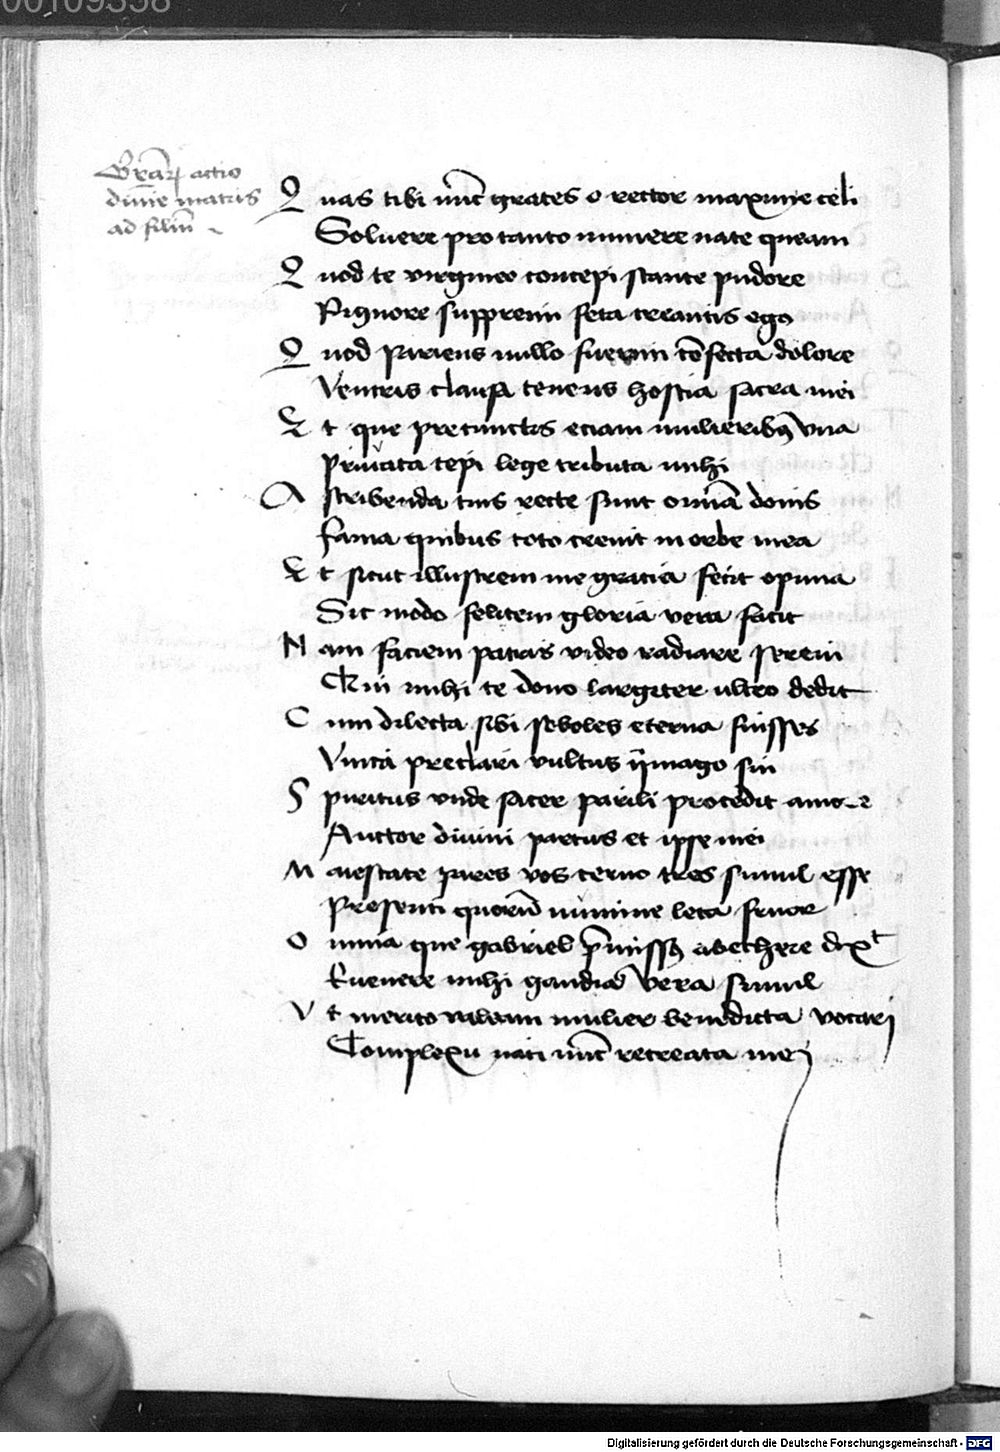 00109358
Gr̄aꝝ actio
diuīe matris
ad filiū
Quas tibi nūc grates o rector maxime celi
Soluere pro tanto munere nate queam
Quod te virgineo concepi stante pudore
Pignore suppremi feta creantis ego
Quod pariens nullo fuerim cōfecta dolore
Ventris clausa tenens hostia sacra mei
Et que precunctis eciam mulieribꝰ vna
Priuata cepi lege tributa michi
Ascribenda tuis recte sunt om̄ia donis
Fama quibus toto creuit in orbe mea
Et sicut illustrem me gracia fecit opima
Sic modo felicem gloria vera facit
Nam faciem patris video radiare sereni
Qui michi te dono largiter vltro dedit
Cum dilecta sibi soboles eterna fuisses
Vnica preclari vultus ymago sui
Spiritus vnde sacer parili procedit amore
Auctor diuini partus et ipse mei
Maiestate pares vos terno tres simul esse
Presenti quorū numine leta fruor
Omnia que gabriel p̄missꝰ ab ethere dixᵗ
Euenere michi gaudia vera simul
Vt merito valeam mulier benedicta vocarj
Complexu nati nūc recreata mej
Digitalisierung gefördert durch die Deutsche Forschungsgemeinschaft - DFG